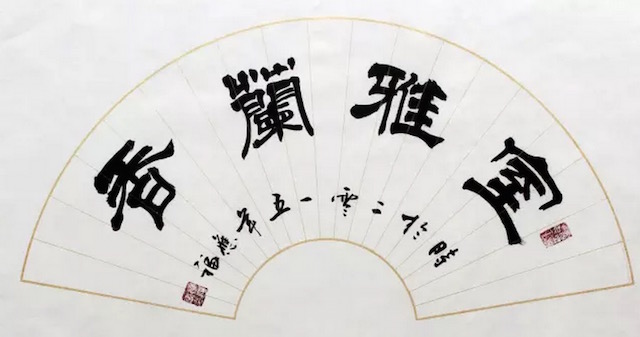 室雅蘭香
時於二零一五年應福